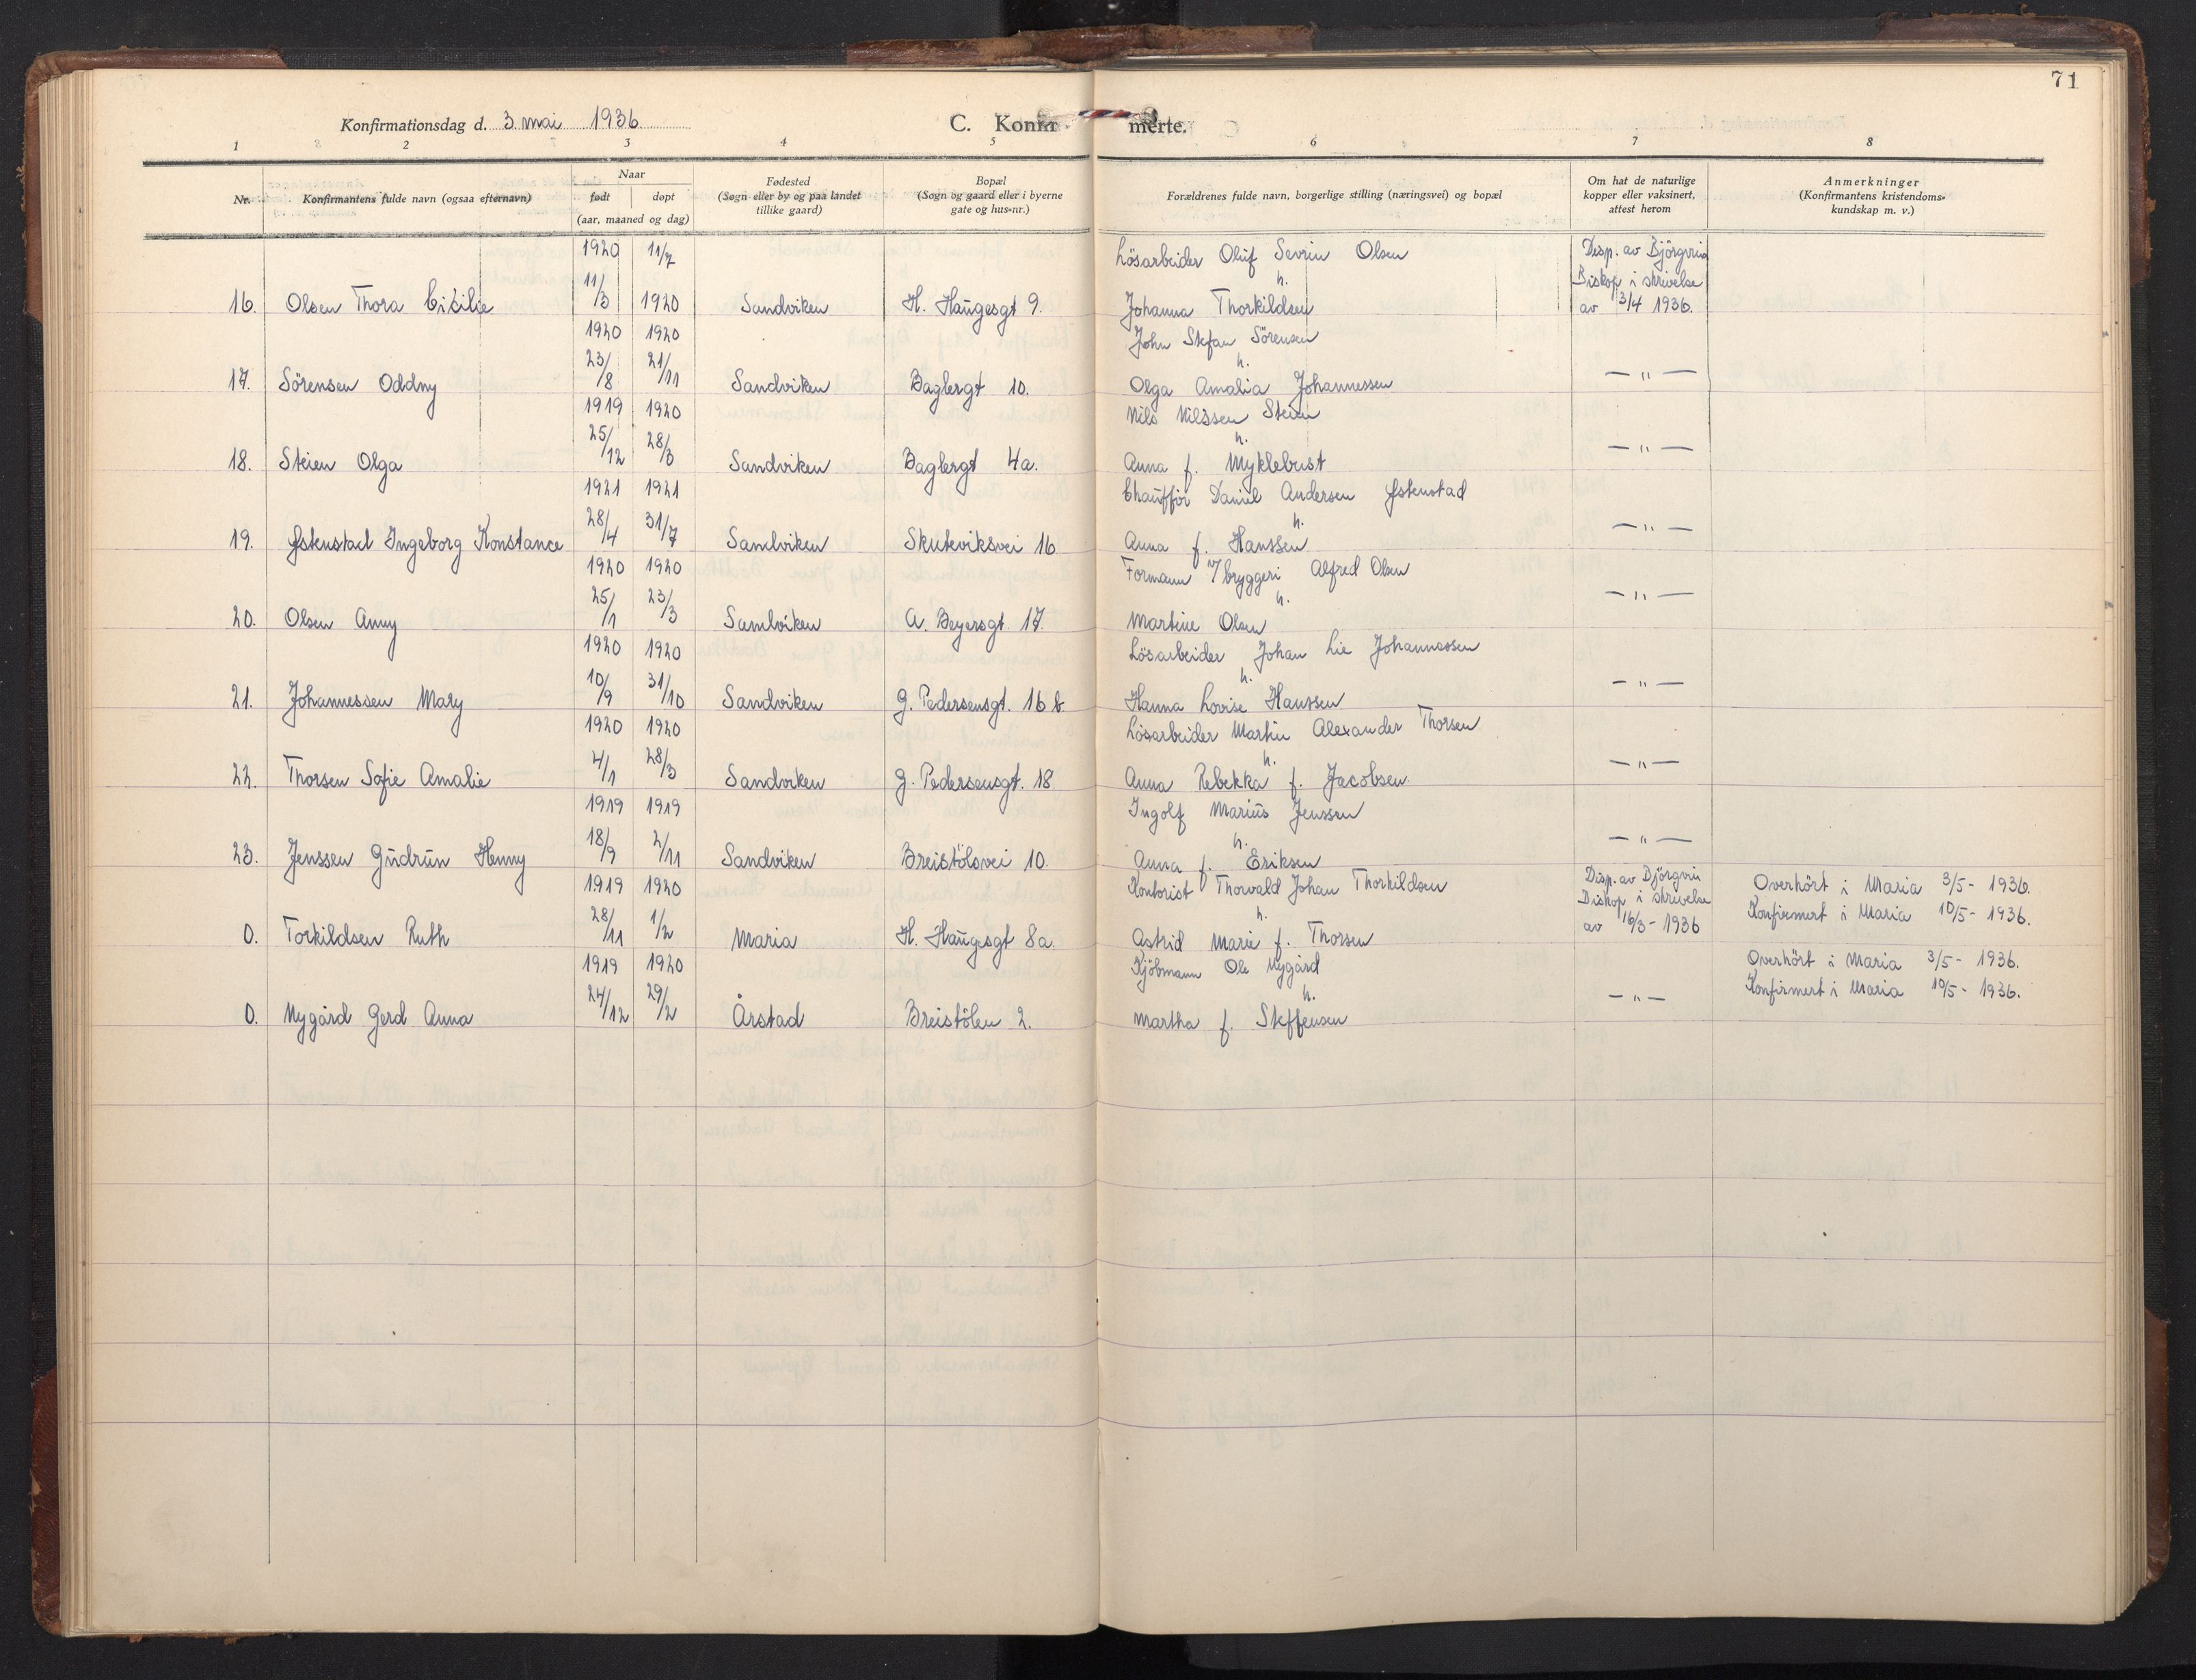 71
Konfirmationsdag d. 3. mai 1936
C. Konfirmerte.
1 2 3 4 5 6 7 8
Nr.
Konfirmantens fulde navn (ogsaa efternavn)
Naar
født
døpt
(aar, maaned og dag)
Fødested
(Sogn eller by og paa landet
tillike gaard)
Bopæl
(Sogn og gaard eller i byerne
gate og hus-nr.)
Forældrenes fulde navn, borgerlige stilling (næringsvei) og bopæl
Om hat de naturlige
kopper eller vaksinert,
attest herom
Anmerkninger
(Konfirmantens kristendoms-
kundskap m. v.)
1920 11/7 Lösarbeider Oluf Sevrin Olsen Disp. av Björgvin
11/3 h. Biskop i skrivelse
16. Olsen Thora Cicilie 1920 Sandviken H. Haugesgt 9. Johanna Thorkildsen av 3/4 1936.
1920 1920 John Stefan Sörensen
23/8 21/11 h.
17. Sörensen Oddny Sandviken Baglergt 10. Olga Amalia Johannessen — " —
1919 1920 Nils Nilssen Steien
25/12 28/3 h.
18. Steien Olga Sandviken Baglergt 4a. Anna f. Myklebust — " —
1921 1921 Chaufför Daniel Andersen Østenstad
28/4 31/7 h.
19. Østenstad Ingeborg Konstance Sandviken Skuteviksvei 16 Anna f. Hanssen — " —
1920 1920 Formann v/ bryggeri Alfred Olsen
25/1 23/3 h.
20. Olsen Anny Sandviken A. Beyersgt. 17. Martine Olsen — " —
1920 1920 Lösarbeider Johan Lie Johannessen
10/9 31/10 h.
21. Johannessen Mary Sandviken G. Pedersensgt. 16 b Hanna Lovise Hanssen — " —
1920 1920 Lösarbeider Martin Alexander Thorsen
4/1 28/3 h.
22. Thorsen Sofie Amalie Sandviken G. Pedersensgt. 18 Anna Rebekka f. Jacobsen. — " —
1919 1919 Ingolf Marius Jenssen
18/9 2/11 h.
23. Jenssen Gudrun Henny Sandviken Breistölsvei 10. Anna f. Eriksen — " —
1919 1920 Kontorist Thorvald Johan Thorkildsen Disp. av Björgvin Overhört i Maria 3/5 - 1936.
28/11 1/2 h. Biskop i skrivelse Konfirmert i Maria 10/5 - 1936.
0. Torkildsen Ruth Maria H. Haugesgt 8a. Astrid Marie f. Thorsen av 16/3 - 1936
1919 1920 Kjöbmann Ole Nygård Overhört i Maria 3/5 - 1936.
24/12 29/2 h. Konfirmert i Maria 10/5 - 1936.
0. Nygård Gerd Anna Årstad Breistölen 2. Martha f. Steffensen — " —